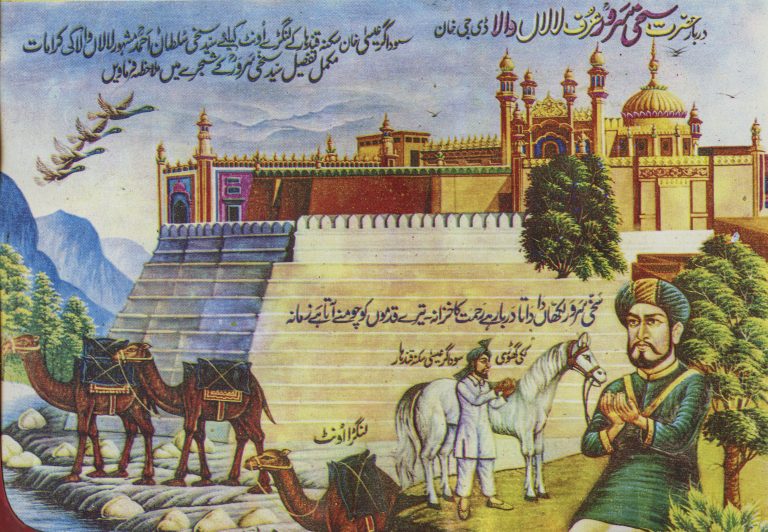 دربار حضرت سخی سرورؒ عرف لالاں والا ڈی جی خان
سوداگر عیسیٰ خان سکنہ قندہار کے لنگڑے اُونٹ کیلئے سید سخی سُلطان احمدؒ مشہور لالاں والا کی کرامات
مکمل تفصیل سید سخی سرورؒ کے شجرے میں ملاحظہ فرماویں
سخی سَرور لکھاں دا داتا دربار ہے رحمت کا خزانہ - تیرے قدموں کو چومنے آتا ہے زمانہ
کی گھوڑی
سوداگر عیسیٰ سکنہ قندہار
لنگڑا اُونٹ